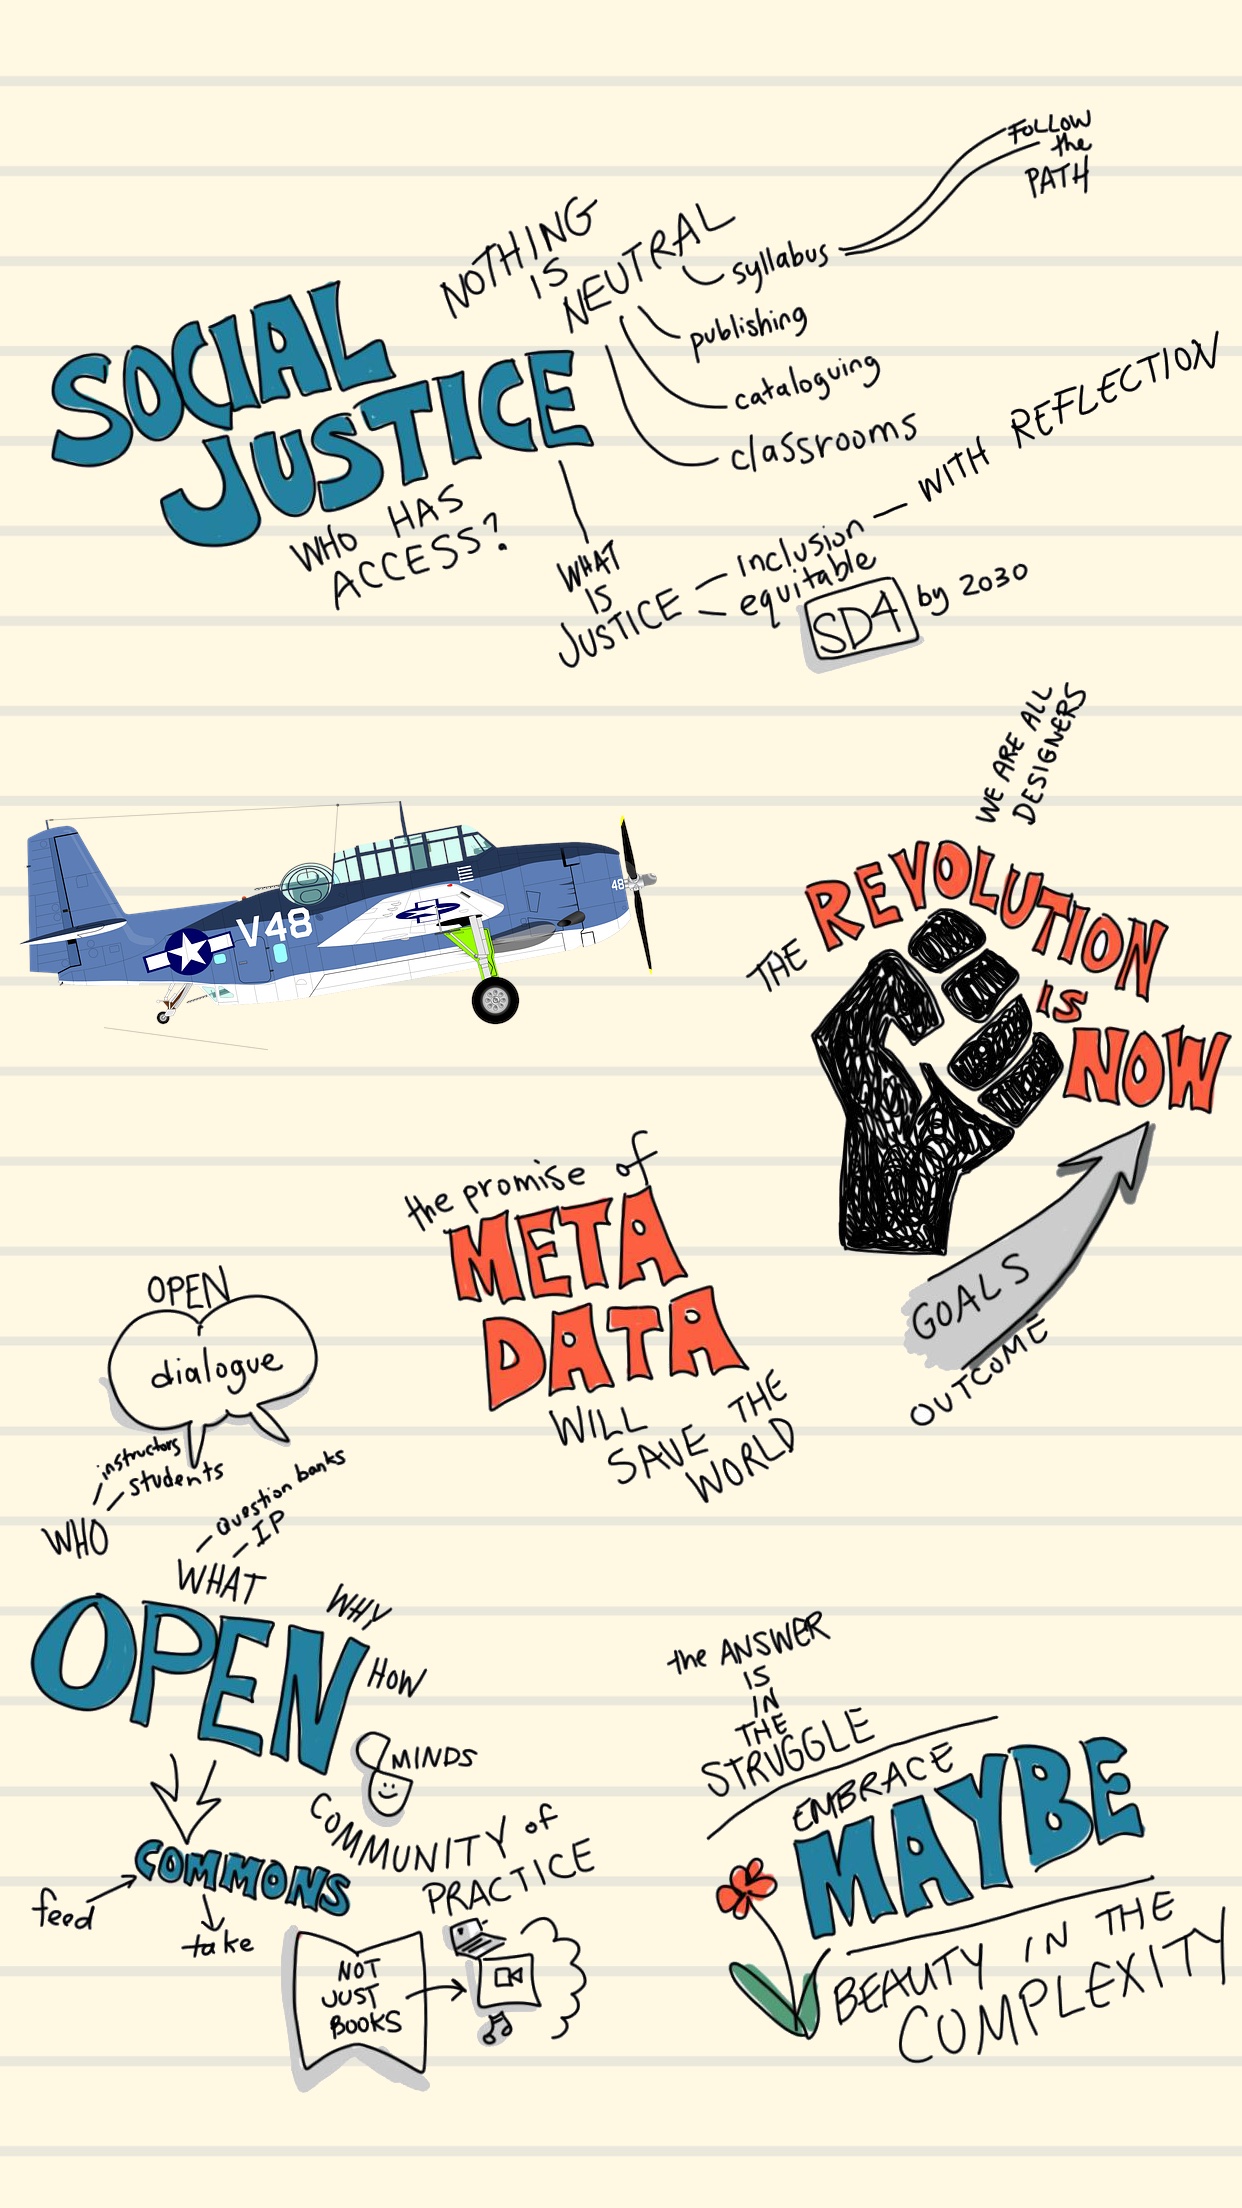 FOLLOW
the
PATH
NOTHING
IS
NEUTRAL
syllabus
publishing
cataloguing
classrooms
SOCIAL
JUSTICE
WHO HAS
ACCESS?
WHAT
IS
JUSTICE
inclusion — WITH REFLECTION
equitable
SD4 by 2030
WE ARE ALL
DESIGNERS
THE REVOLUTION
IS
NOW
V48
48
GOALS
OUTCOME
the promise of
META
DATA
WILL
SAVE THE
WORLD
OPEN
dialogue
instructors
students
WHO
question banks
IP
WHAT
WHY
HOW
OPEN
MINDS
COMMUNITY of
PRACTICE
COMMONS
feed
take
NOT
JUST
BOOKS
the ANSWER
IS
IN
THE
STRUGGLE
EMBRACE
MAYBE
BEAUTY IN THE
COMPLEXITY